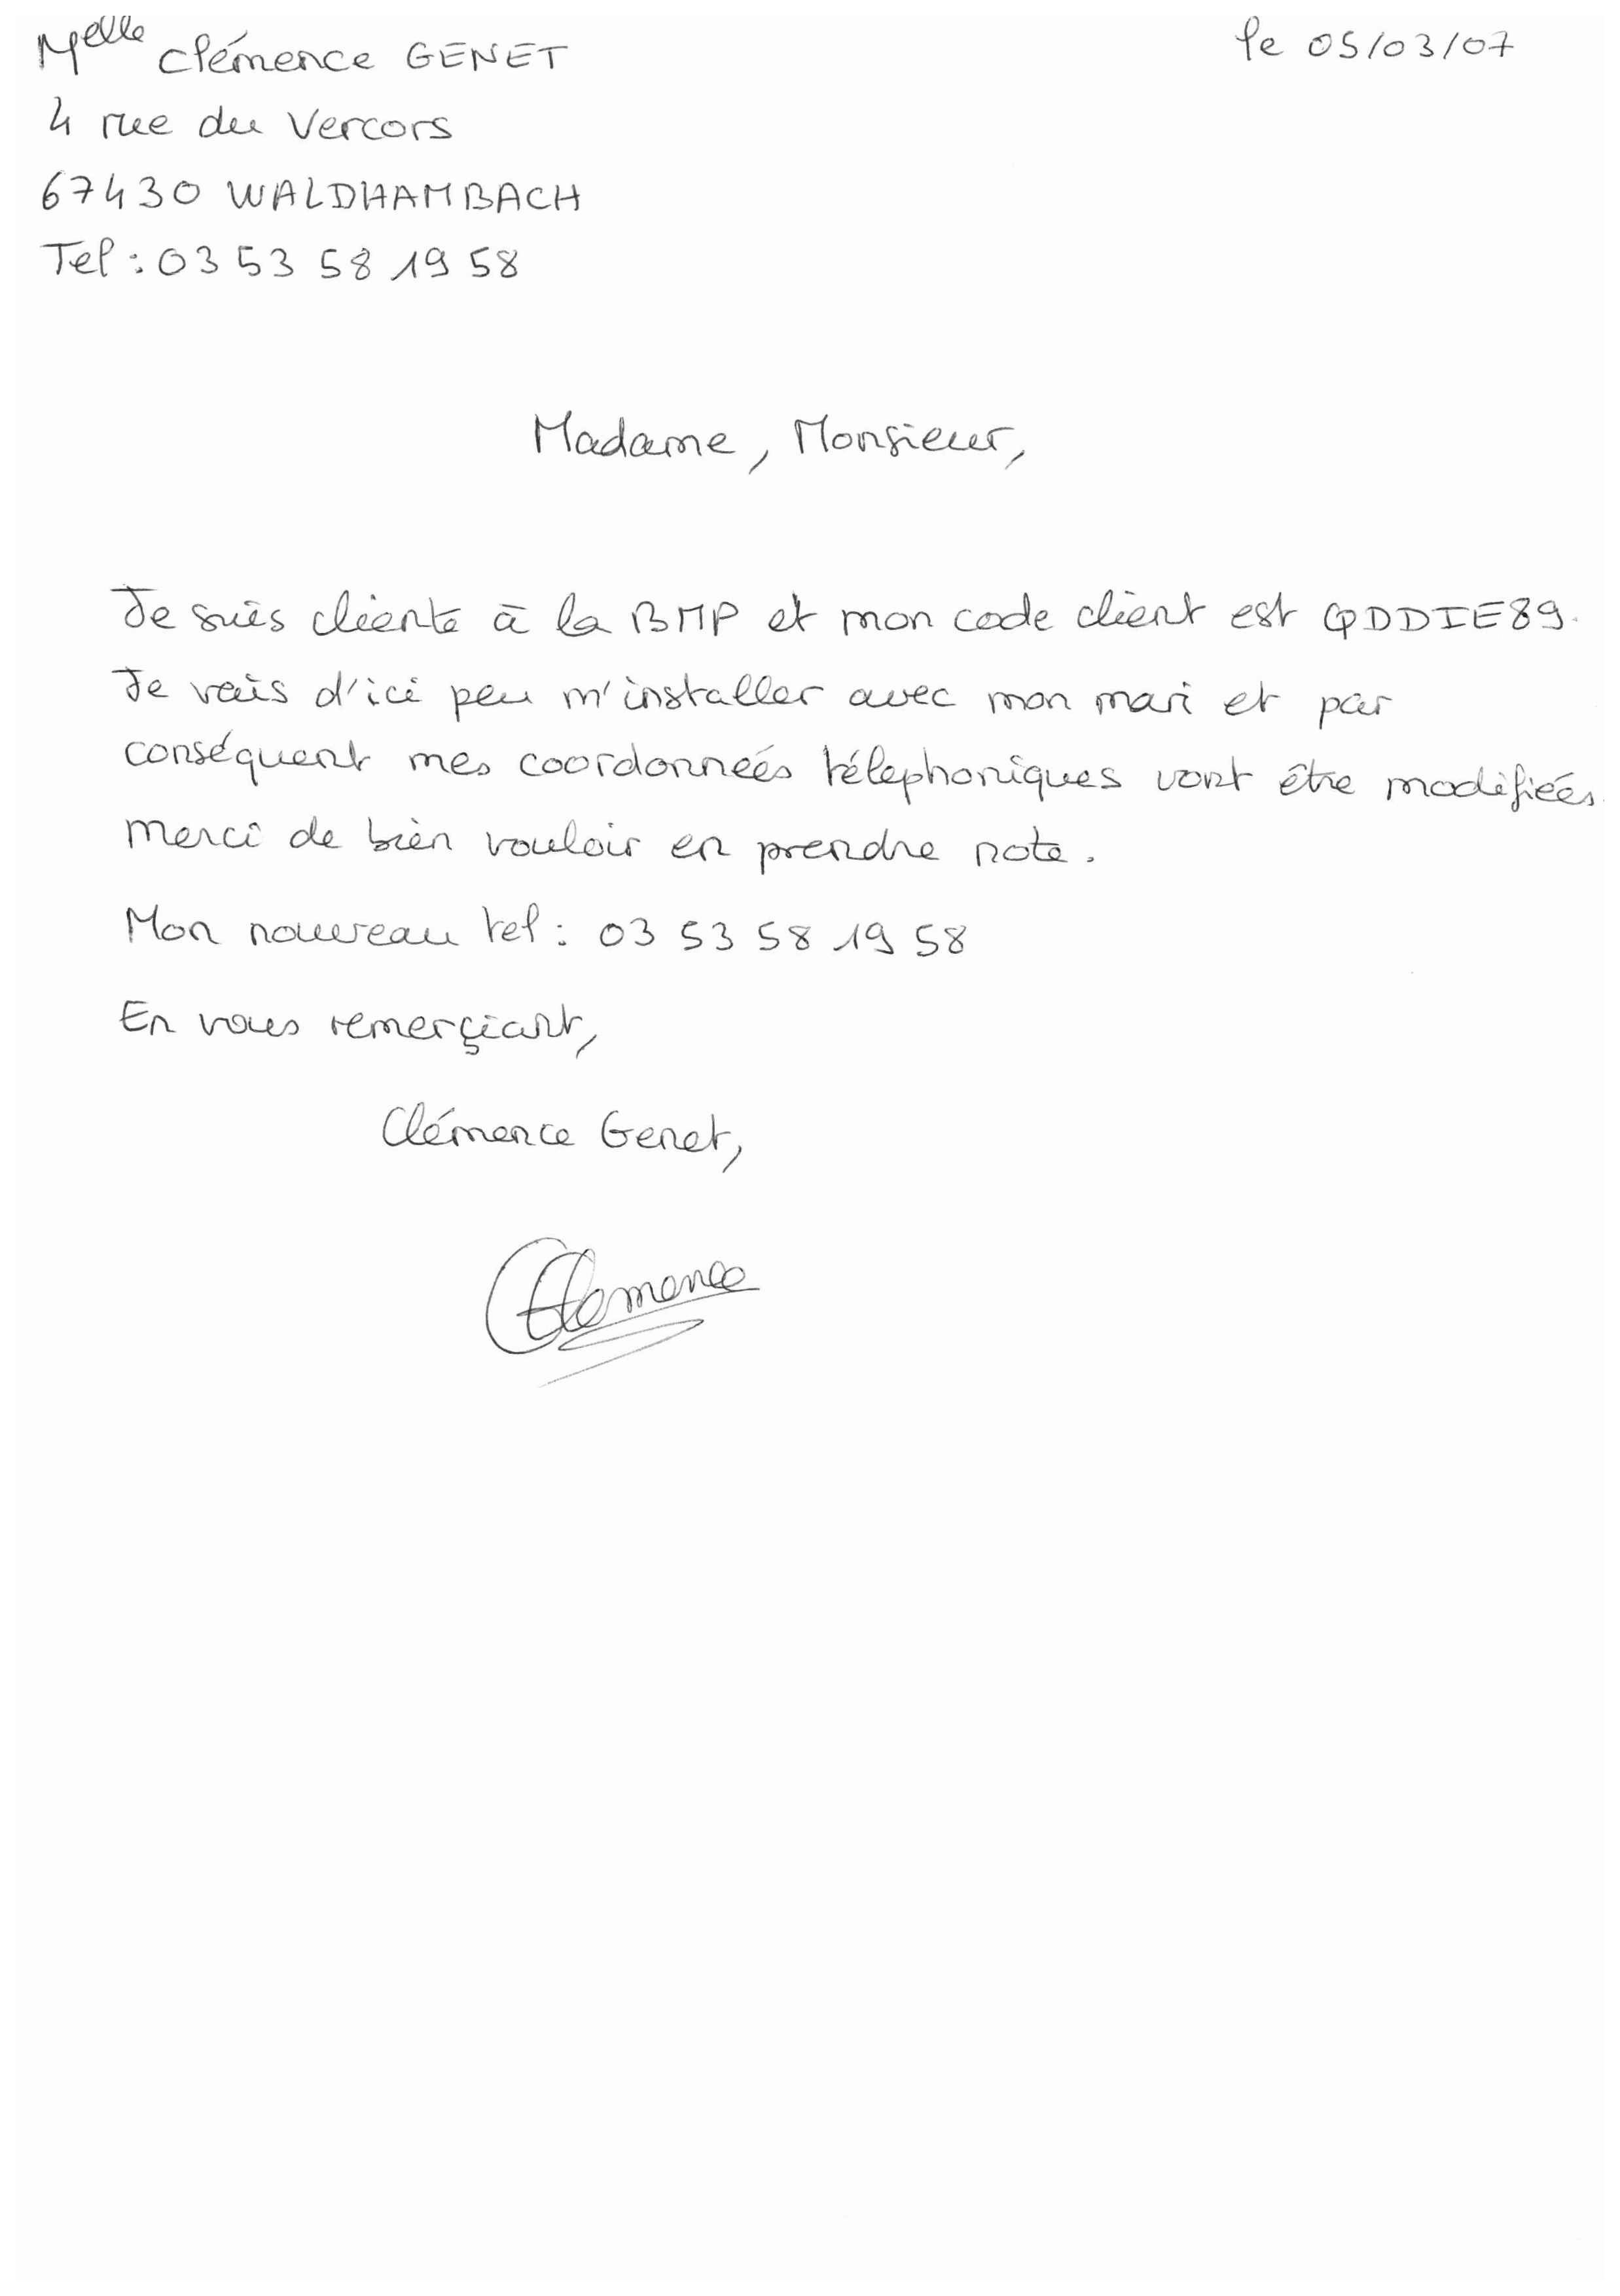 Melle Clémence GENET
le 05/03/07
4 rue du Vercors
67430 WALDHAMBACH
Tel : 03 53 58 19 58
Madame, Monsieur,
Je suis cliente à la BMP et mon code client est QDDIE89.
Je vais d'ici peu m'installer avec mon mari et par
conséquent mes coordonneés télephoniques vont être modifieés.
merci de bien vouloir en prendre note.
Mon nouveau tel : 03 53 58 19 58
En vous remerçiant,
Clémence Genet,
Clemence